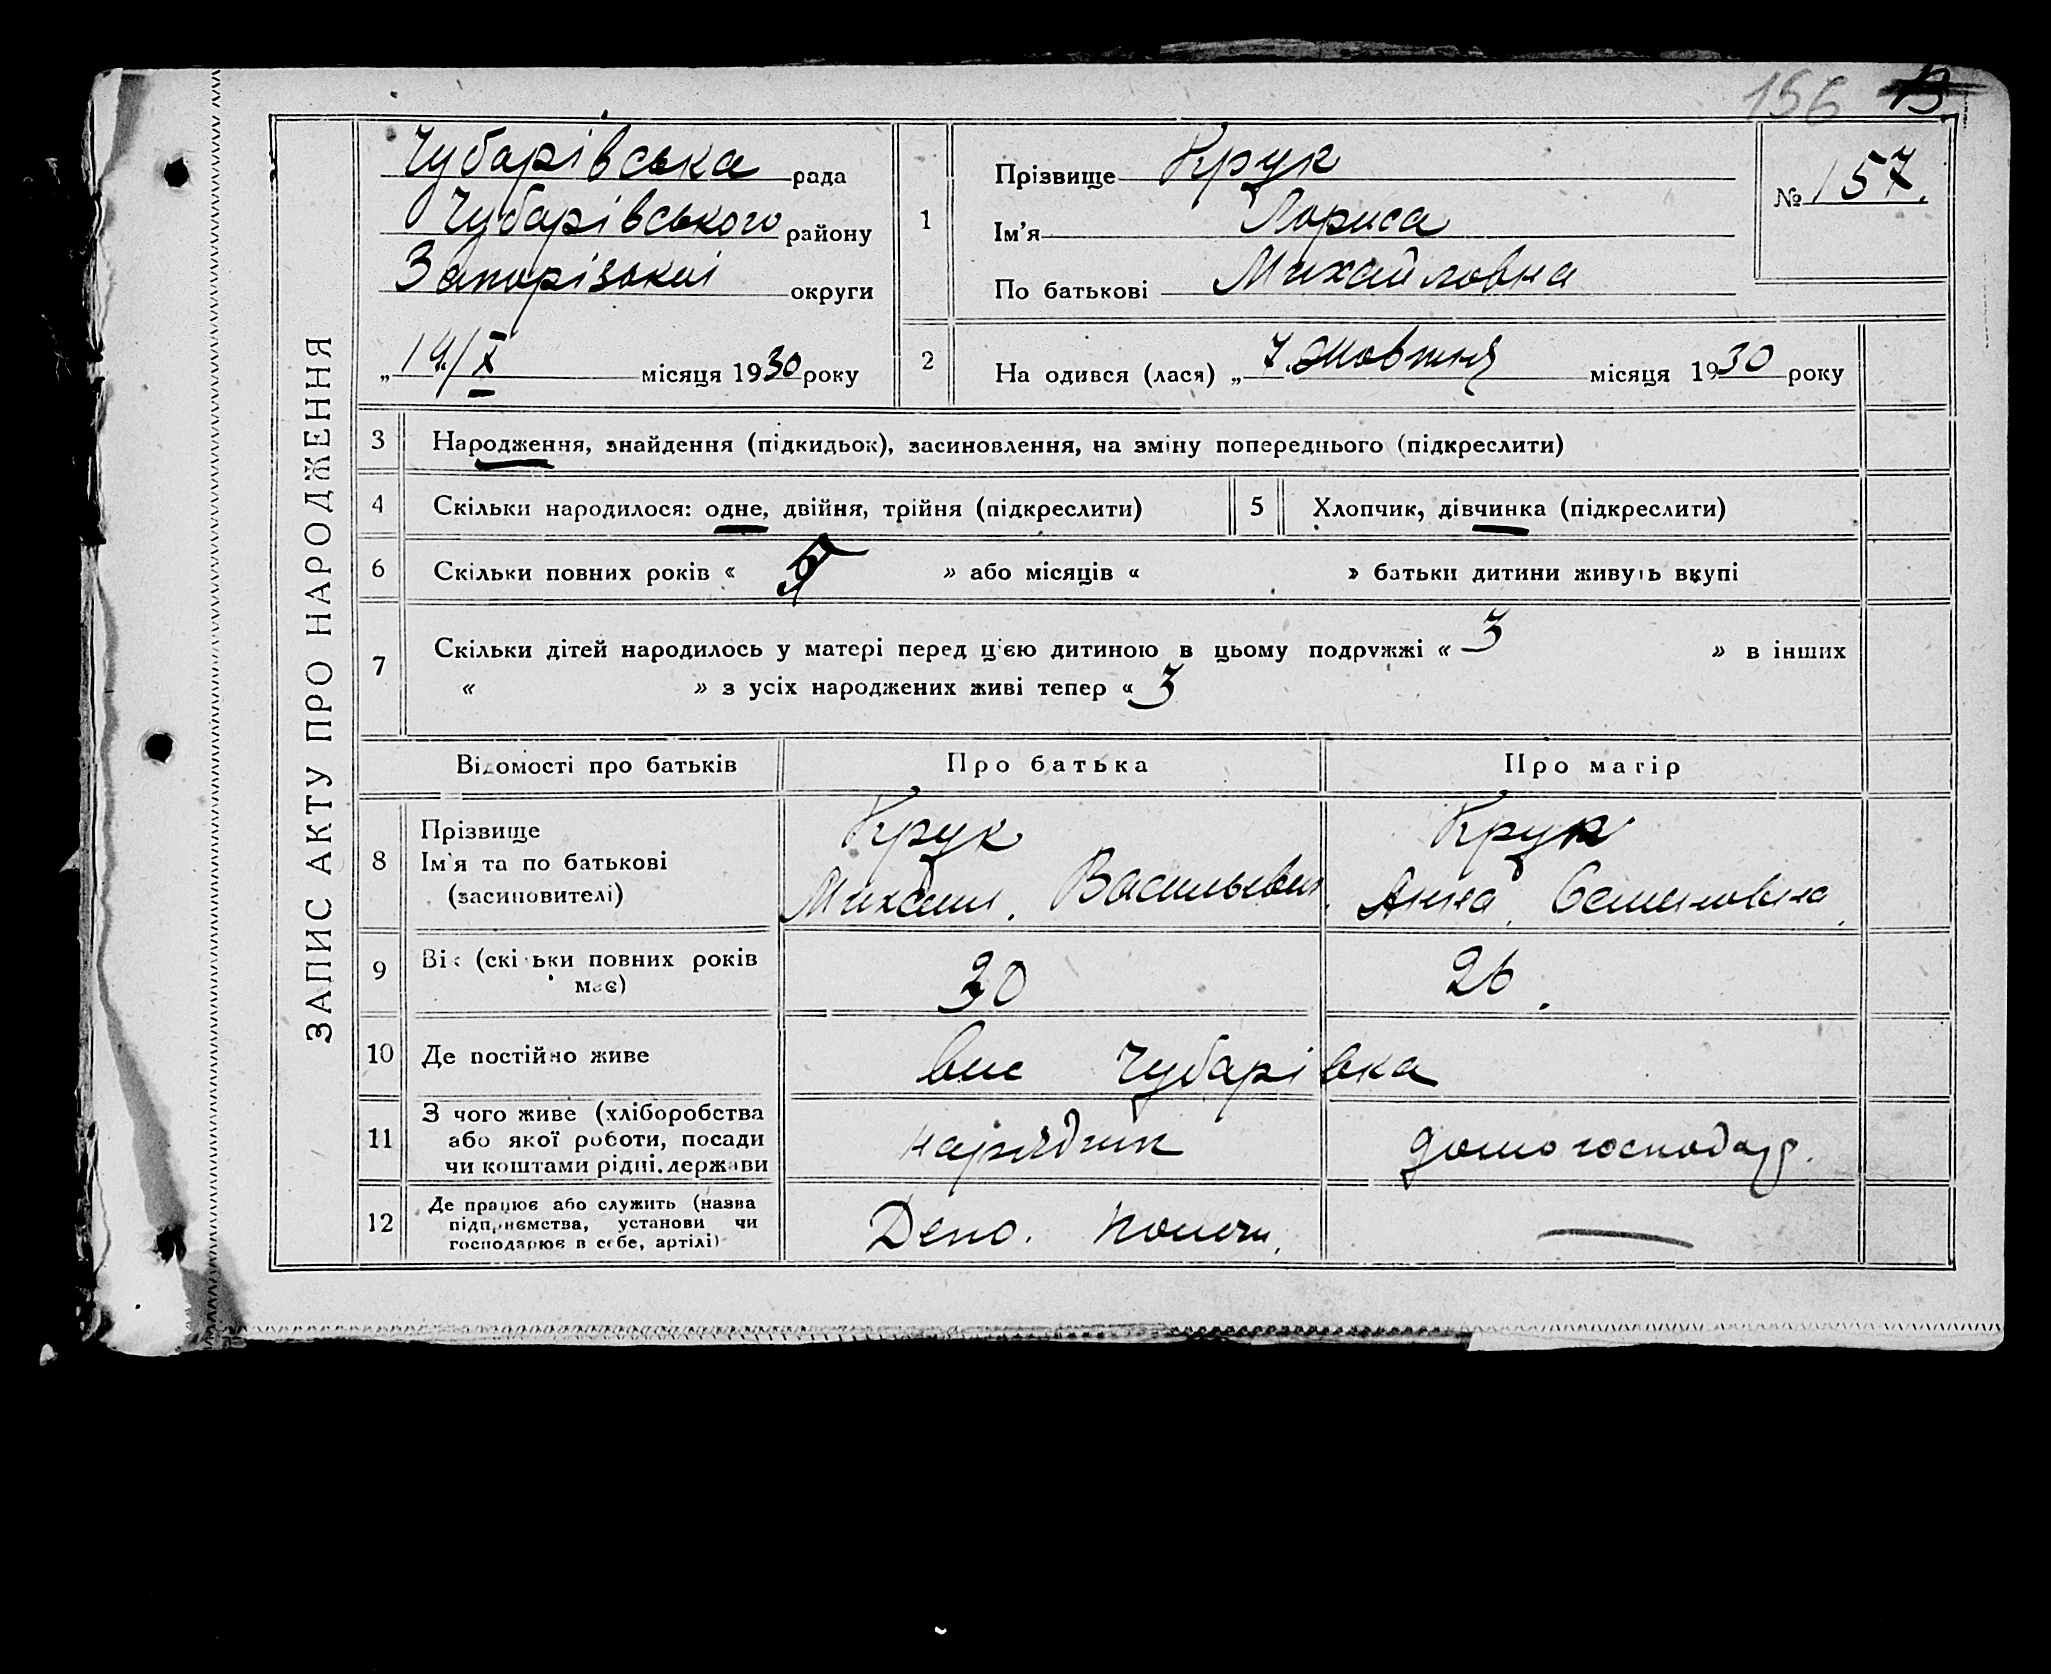 156
ЗАПИС АКТУ ПРО НАРОДЖЕННЯ
Чубарівська рада
Чубарівського району
Запорізької округи
„14/X місяця 1930 року
1
Прізвище Крук
Ім'я Лариса
По батькові Михайловна
№ 157.
2
На одився (лася) „7 Жовтня місяця 1930 року
3 Народження, знайдення (підкидьок), засиновлення, на зміну попереднього (підкреслити)
4 Скільки народилося: одне, двійня, трійня (підкреслити)
5 Хлопчик, дівчинка (підкреслити)
6 Скільки повних років « 9 » або місяців « » батьки дитини живуть вкупі
7 Скільки дітей народилось у матері перед ц'єю дитиною в цьому подружжі « 3 » в інших
« » з усіх народжених живі тепер « 3
Відомості про батьків Про батька Про матір
8 Прізвище
Ім'я та по батькові
(засиновителі)
Крук
Михаил. Васильевич.
Крук
Анна Семеновна.
9 Вік (скільки повних років має)
30
26.
10 Де постійно живе
вис Чубарівка
11 З чого живе (хліборобства
або якої роботи, посади
чи коштами рідні, держави
нарядчик
домогосподар.
12 Де працює або служить (назва
підприємства, установи чи
господарює в себе, артілі)
Депо. Пологи.